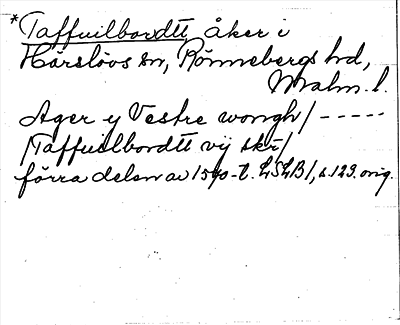 *Taffuilbordtt, åker i
Härslövs sn, Rönnebergs hd,
Malm. l.
Ager y Vestre wongh/ -----
/Taffuilbordtt vij skr/
förra delen av 1500-t. LSLB1, s. 123. orig.